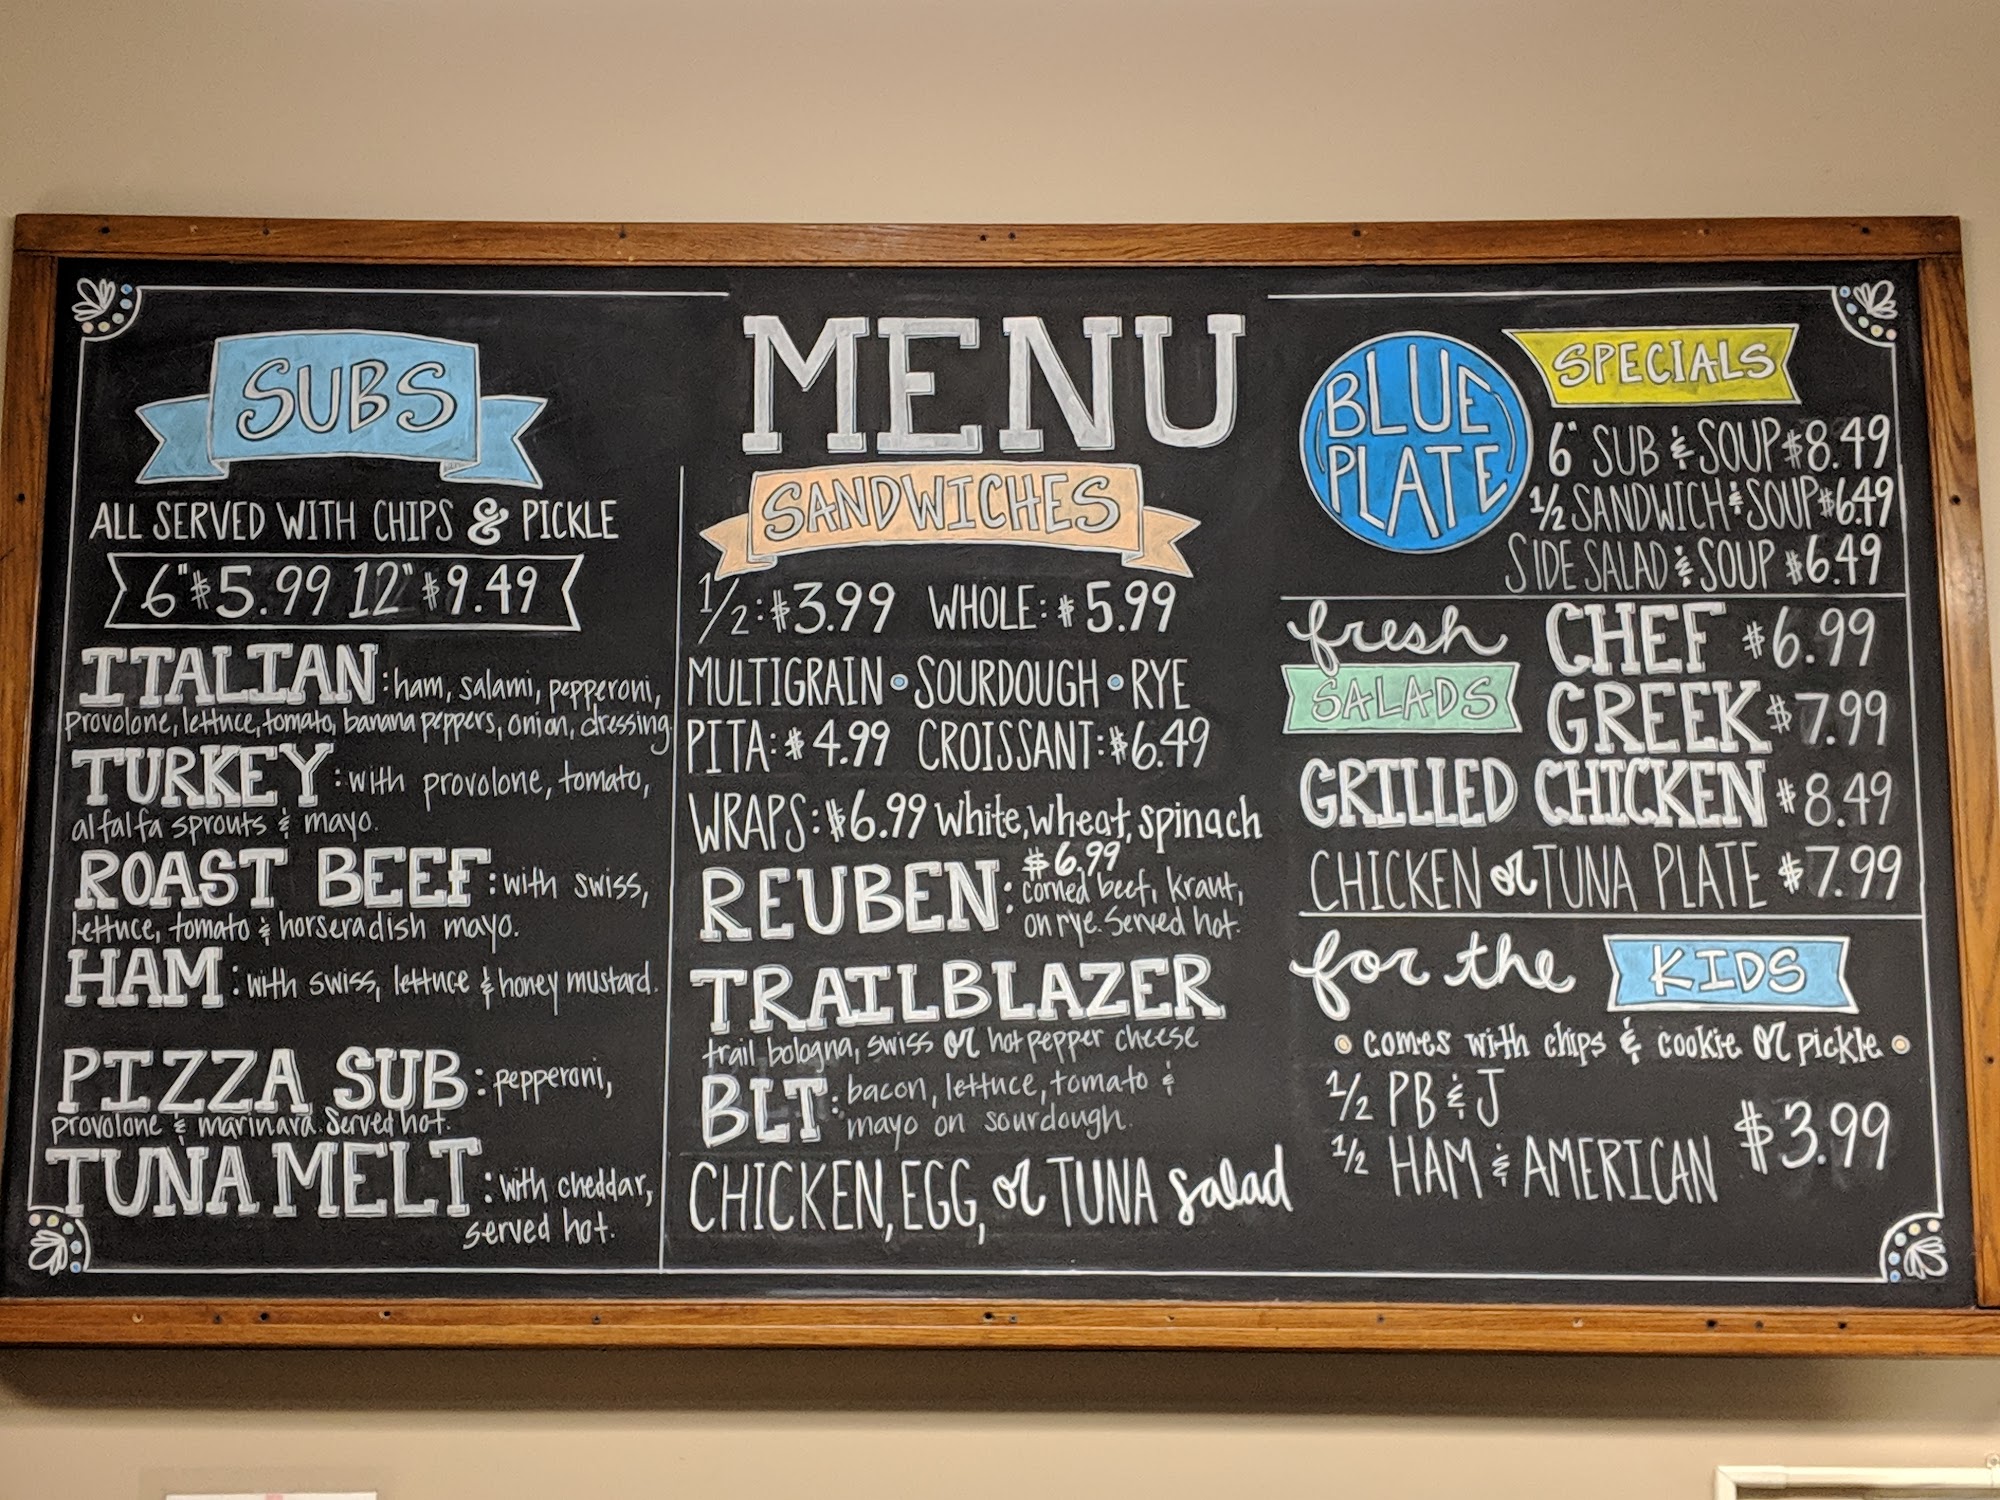 MENU
SUBS
ALL SERVED WITH CHIPS & PICKLE
6" $5.99 12" $9.49
ITALIAN: ham, salami, pepperoni,
provolone, lettuce, tomato, banana peppers, onion, dressing.
TURKEY: with provolone, tomato,
alfalfa sprouts & mayo.
ROAST BEEF: with swiss,
lettuce, tomato & horseradish mayo.
HAM: with swiss, lettuce & honey mustard.
PIZZA SUB: pepperoni,
provolone & marinara. Served hot.
TUNA MELT: with cheddar,
served hot.
SANDWICHES
1/2: $3.99 WHOLE: $5.99
MULTIGRAIN • SOURDOUGH • RYE
PITA: $4.99 CROISSANT: $6.49
WRAPS: $6.99 white, wheat, spinach
$6.99
REUBEN: corned beef, kraut,
on rye. Served hot.
TRAILBLAZER
trail bologna, swiss or hot pepper cheese
BLT: bacon, lettuce, tomato &
mayo on sourdough.
CHICKEN, EGG, or TUNA salad
BLUE
PLATE
SPECIALS
6" SUB & SOUP $8.49
1/2 SANDWICH & SOUP $6.49
SIDE SALAD & SOUP $6.49
fresh
SALADS
CHEF $6.99
GREEK $7.99
GRILLED CHICKEN $8.49
CHICKEN or TUNA PLATE $7.99
for the KIDS
• comes with chips & cookie or pickle •
1/2 PB & J
1/2 HAM & AMERICAN
$3.99